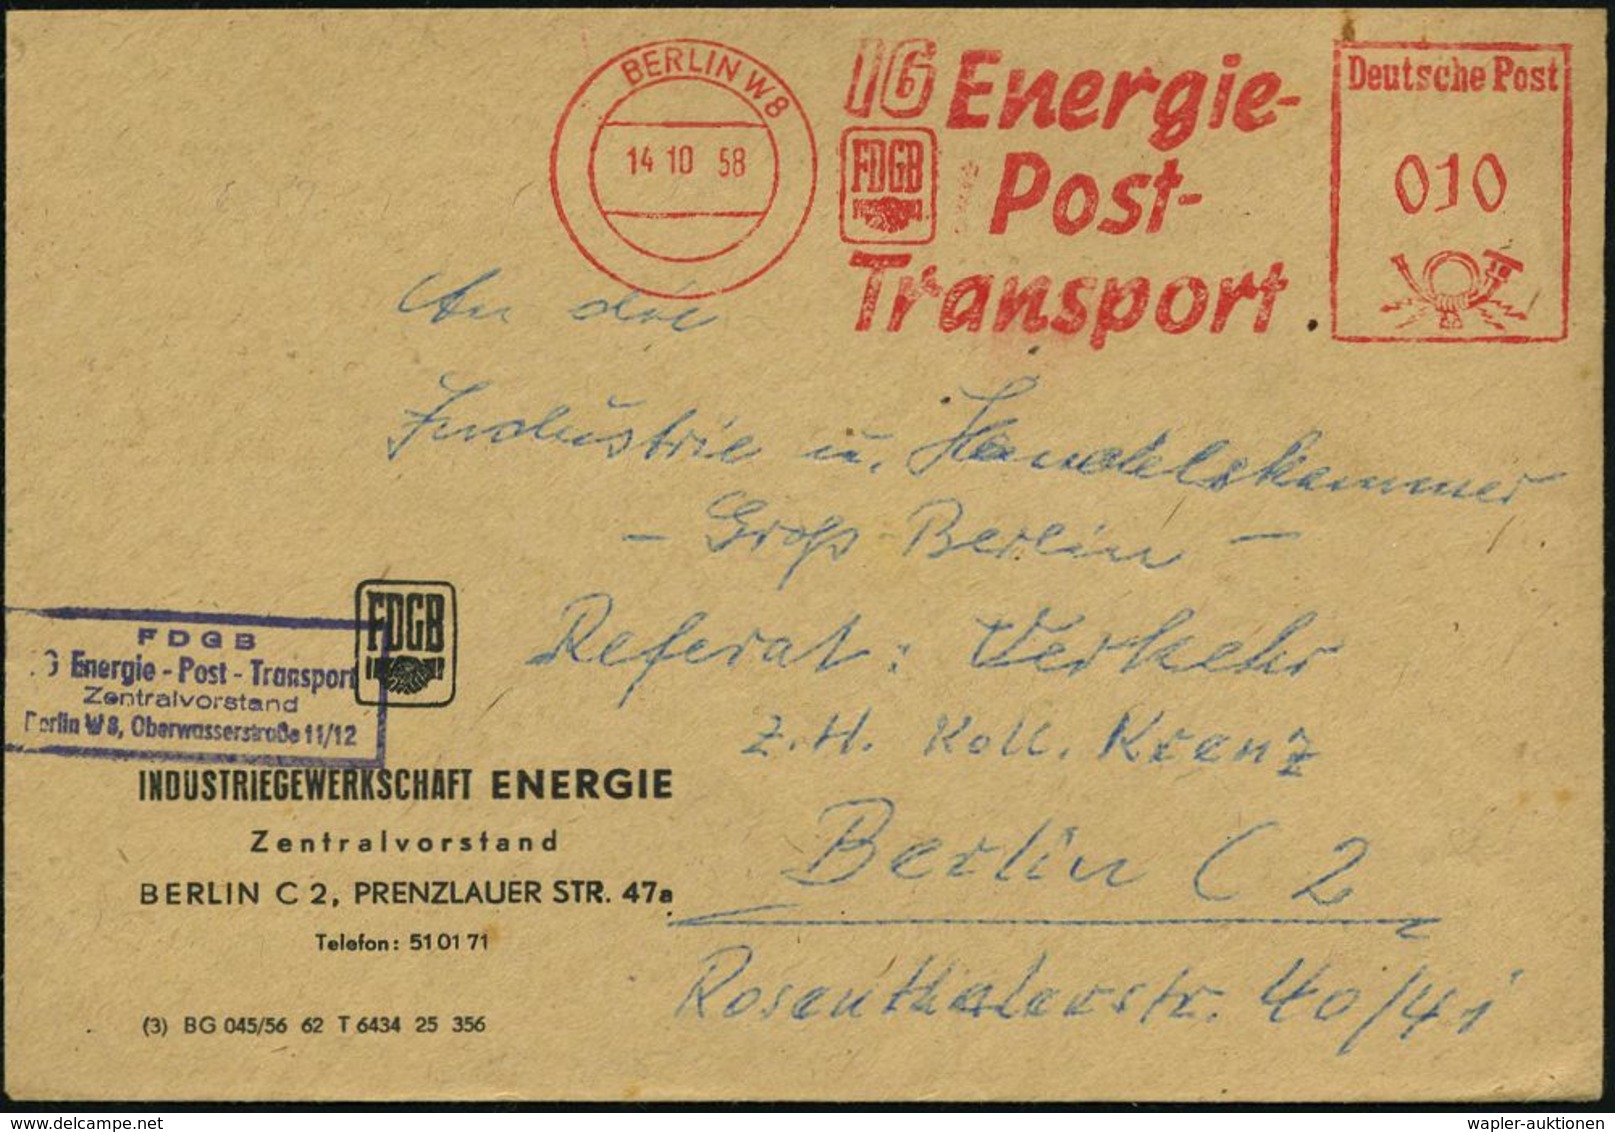 BERLIN W 8
14 10 58
IG Energie-
FDGB Post-
Transport
Deutsche Post
010
An die
Industrie u. Handelskammer
- Groß Berlin -
Referat: Verkehr
z. H. Koll. Krenz
Berlin C 2
Rosenthalerstr. 40/41
FDGB
FDGB
G Energie - Post - Transport
Zentralvorstand
Berlin W 8, Oberwasserstraße 11/12
INDUSTRIEGEWERKSCHAFT ENERGIE
Zentralvorstand
BERLIN C 2, PRENZLAUER STR. 47a
Telefon: 51 01 71
(3) BG 045/56 62 T 6434 25 356
wapler-auktionen